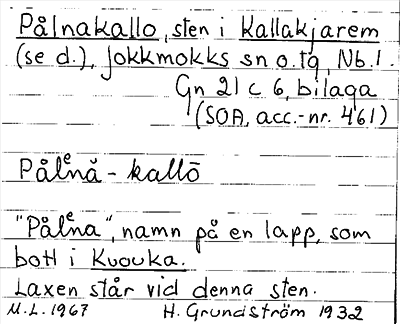 Pålnakallo, sten i Kallakjarem
(se d.), Jokkmokks sn o. tg, Nb. l.
Gn 21 c 6, bilaga
(SOA, acc.-nr. 461)
Pålᵉnå̆ - kallō
"Pålᵉna", namn på en lapp, som
bott i Kvouka.
Laxen står vid denna sten.
M.L. 1967 H. Grundström 1932